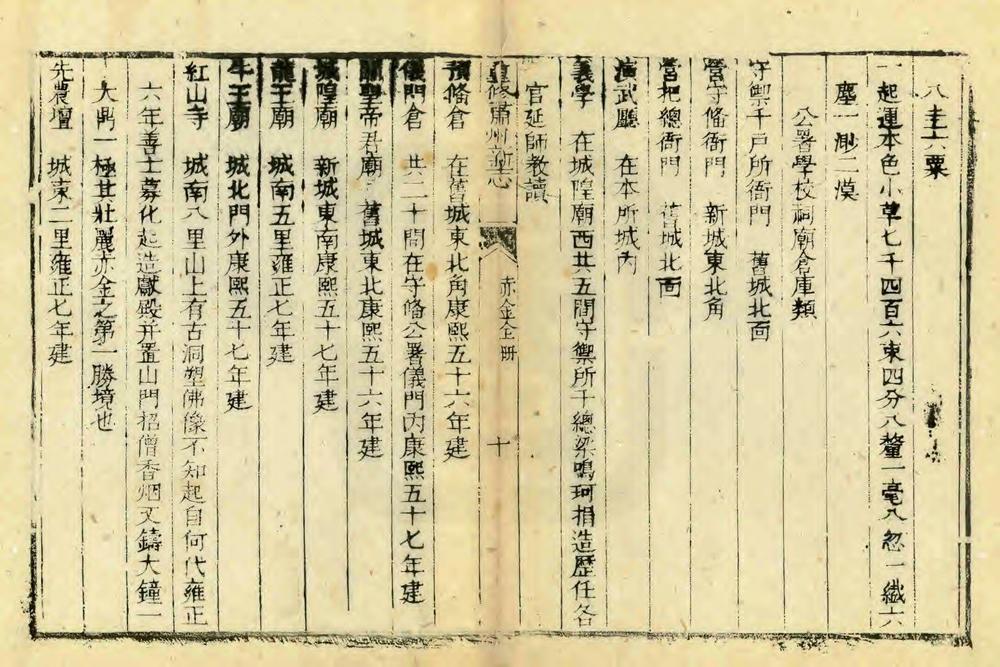 八圭六粟
一起運本色小草七千四百六束四分八釐一毫八忽一纖六
塵一渺二漠
公署學校祠廟倉庫類
守禦千戶所衙門 舊城北面
營守俻衙門 新城東北角
營把總衙門 舊城北面
演武廳 在本所城內
義學 在城隍廟西共五間守禦所千總梁鳴珂捐造歷任各
官延師教讀
重修肅州新志 赤金全冊 十
預俻倉 在舊城東北角康熙五十六年建
儀門倉 共二十間在守俻公署儀門內康熙五十七年建
關聖帝君廟 舊城東北康熙五十六年建
城隍廟 新城東南康熙五十七年建
龍王廟 城南五里雍正七年建
牛王廟 城北門外康熙五十七年建
紅山寺 城南八里山上有古洞塑佛像不知起自何代雍正
六年善士募化起造獻殿并置山門招僧香烟又鑄大鐘一
大鼎一極其壯麗亦赤金之第一勝境也
先農壇 城東二里雍正七年建